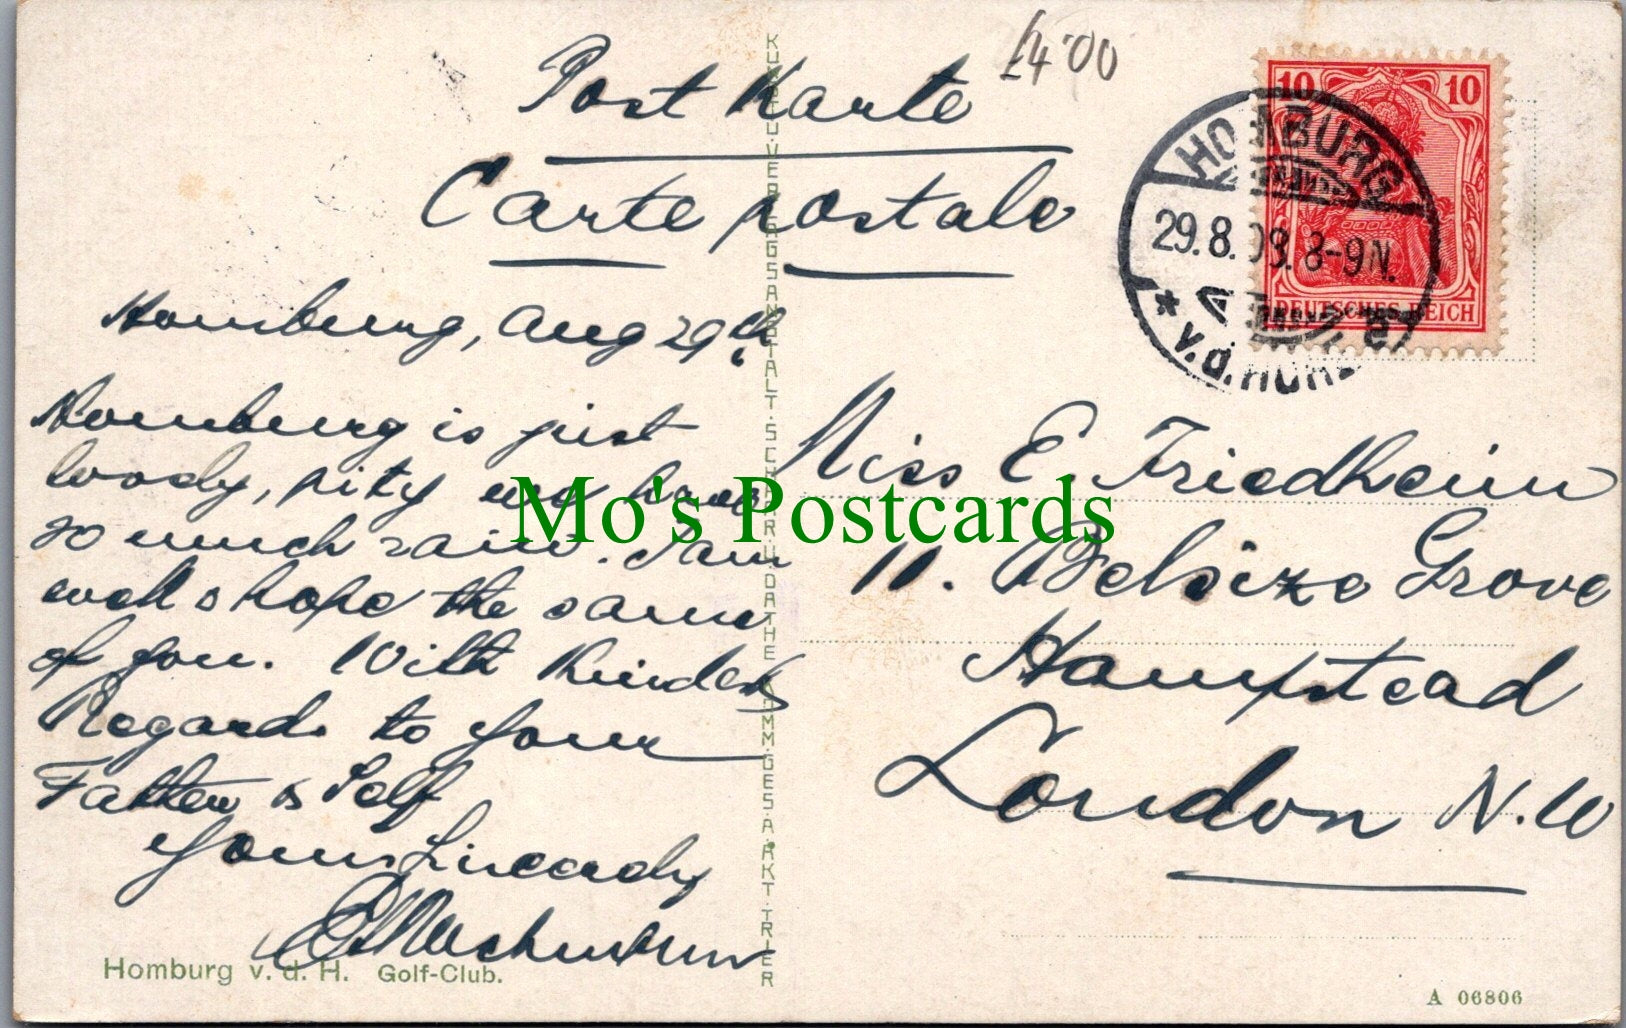 Post Karte
£4.00
Carte postale
Homburg, Aug 29th
Homburg is just
lovely, pity we have
so much rain. I am
well & hope the same
of you. With Kindest
Regards to your
Father & Self
Yours Sincerely
Homburg v. d. H. Golf-Club.
KUNST U. VERLAGSANSTALT SCHAAR & DATHE KOMM.GES. A. AKT. TRIER
10 10
DEUTSCHES REICH
HOMBURG
29.8. 8-9N.
v.d. HÖHE
Miss E. Friedheim
11. Belsize Grove
Hampstead
London N.W
A 06806
Mo's Postcards